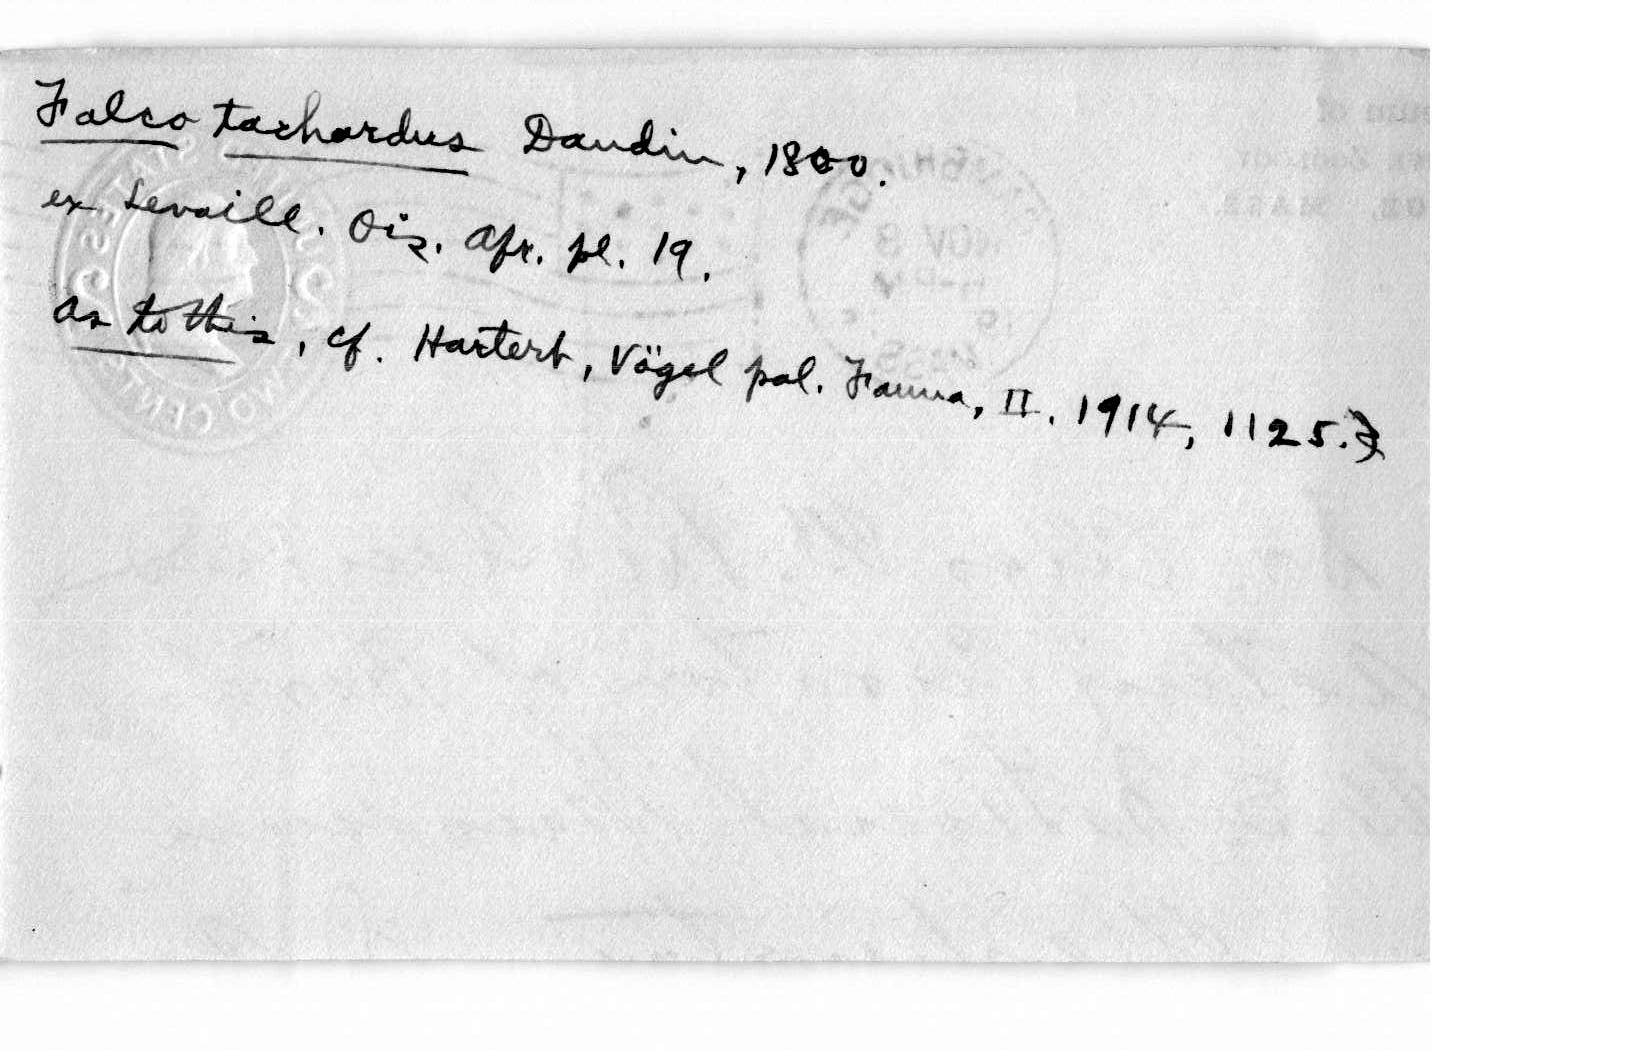 Falco tachardus Daudin, 1800.
ex Levaill. Ois. Afr. pl. 19.
As to this, cf. Hartert, Vögel pal. Fauna, II. 1914, 1125.